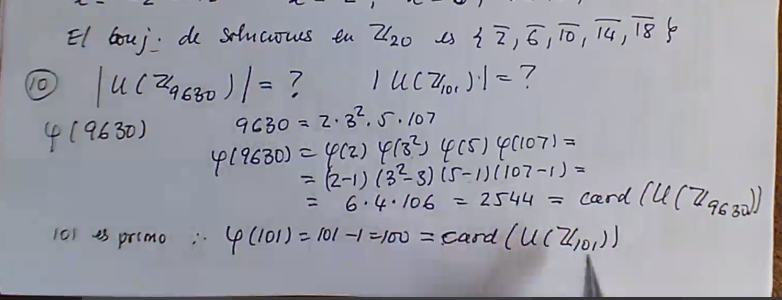 El conj. de soluciones en ℤ₂₀ es { 2̅, 6̅, 1̅0̅, 1̅4̅, 1̅8̅ }
⑩ |U(ℤ₉₆₃₀)| = ? |U(ℤ₁₀₁)| = ?
φ(9630) 9630 = 2·3²·5·107
φ(9630) = φ(2) φ(3²) φ(5) φ(107) =
= (2-1) (3²-3) (5-1) (107-1) =
= 6·4·106 = 2544 = card (U(ℤ₉₆₃₀))
101 es primo ∴ φ(101) = 101-1 = 100 = card (U(ℤ₁₀₁))